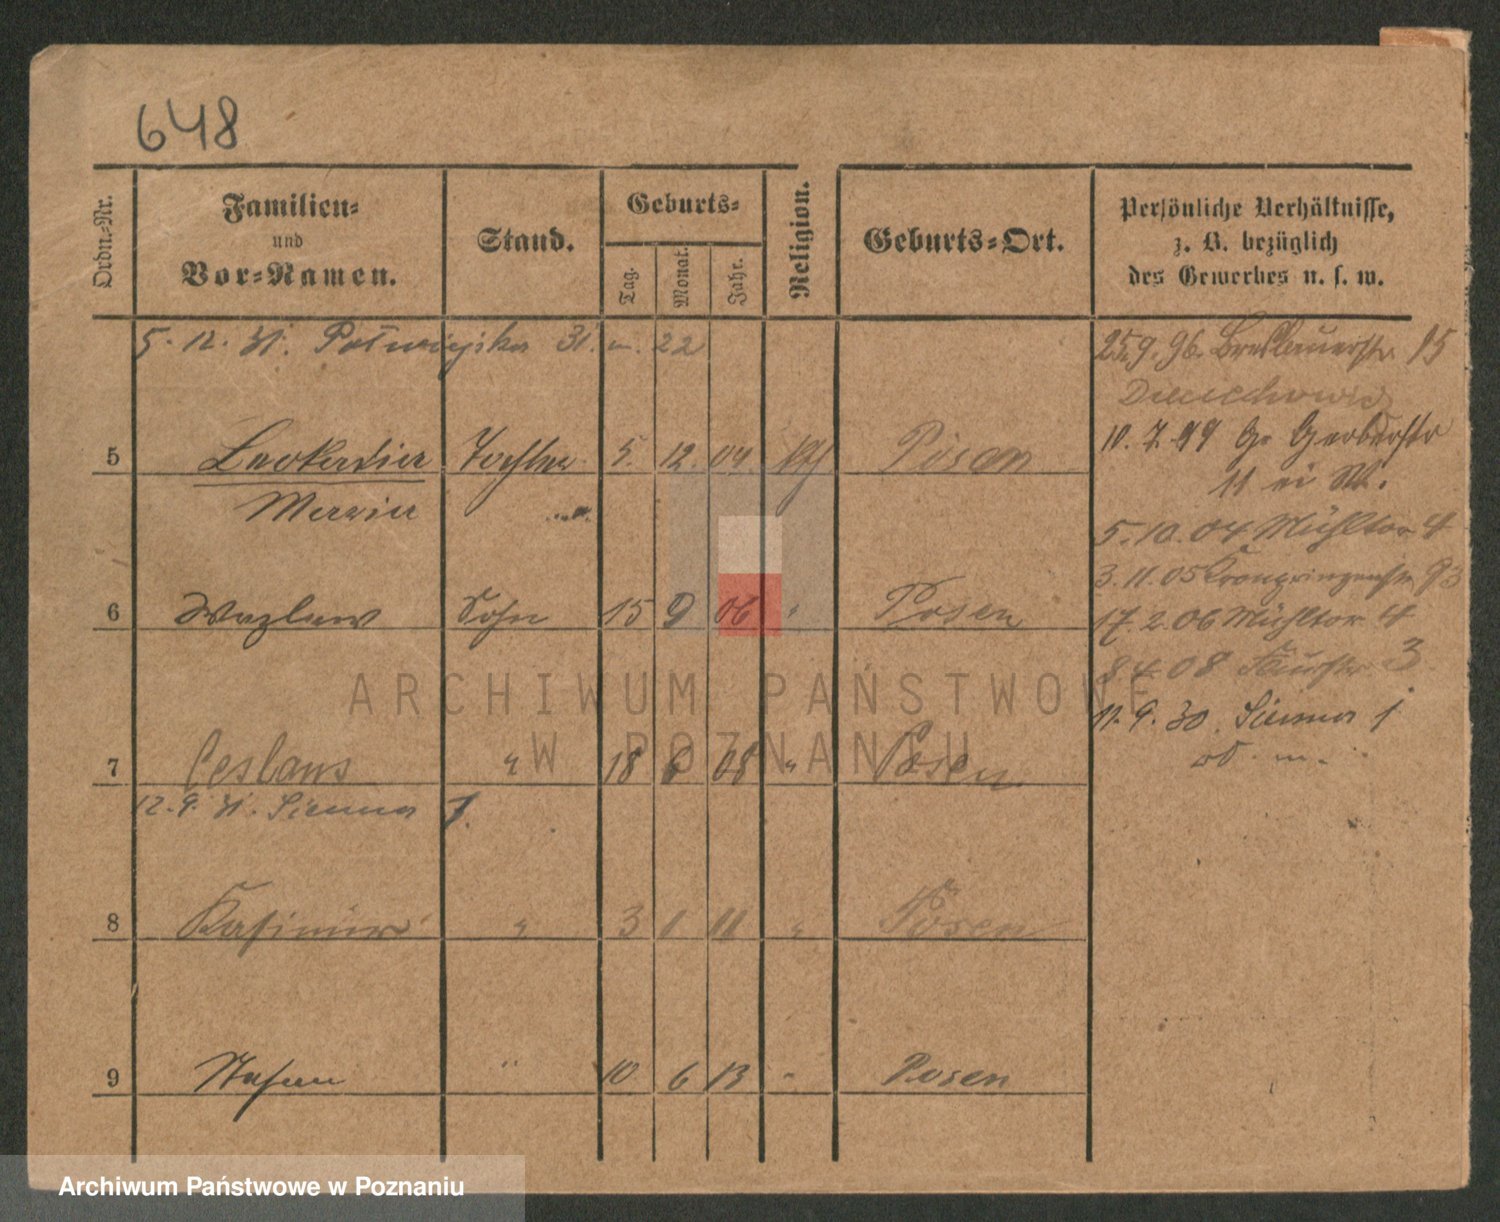 648
Ordn.-Nr.
Familien-
und
Vor-Namen.
Stand.
Geburts-
Tag.
Monat.
Jahr.
Religion.
Geburts-Ort.
Persönliche Verhältnisse,
z. B. bezüglich
des Gewerbes u. s. w.
5. 12. 31. 31. m. 22
25.9.96. Breslauerstr 15
10.7.99 Gr Gerberstr
11
5 Leokadia Tochter 5. 12. 04 kth Posen
Maria
5.10.04 Mühltor 4
3.11.05 Kronprinzenstr 93
6 Wazlaw Sohn 15 9 06 " Posen
17.2.06 Mühltor 4
8.4.08 3
11.9.30. Sienna 1
7 Ceslaus " 18 6 08 " Posen
12.9.31. Sienna 7.
8 Kasimir " 3 1 11 " Posen
9 Stefan " 10 6 13 " Posen
ARCHIWUM PAŃSTWOWE
W POZNANIU
Archiwum Państwowe w Poznaniu